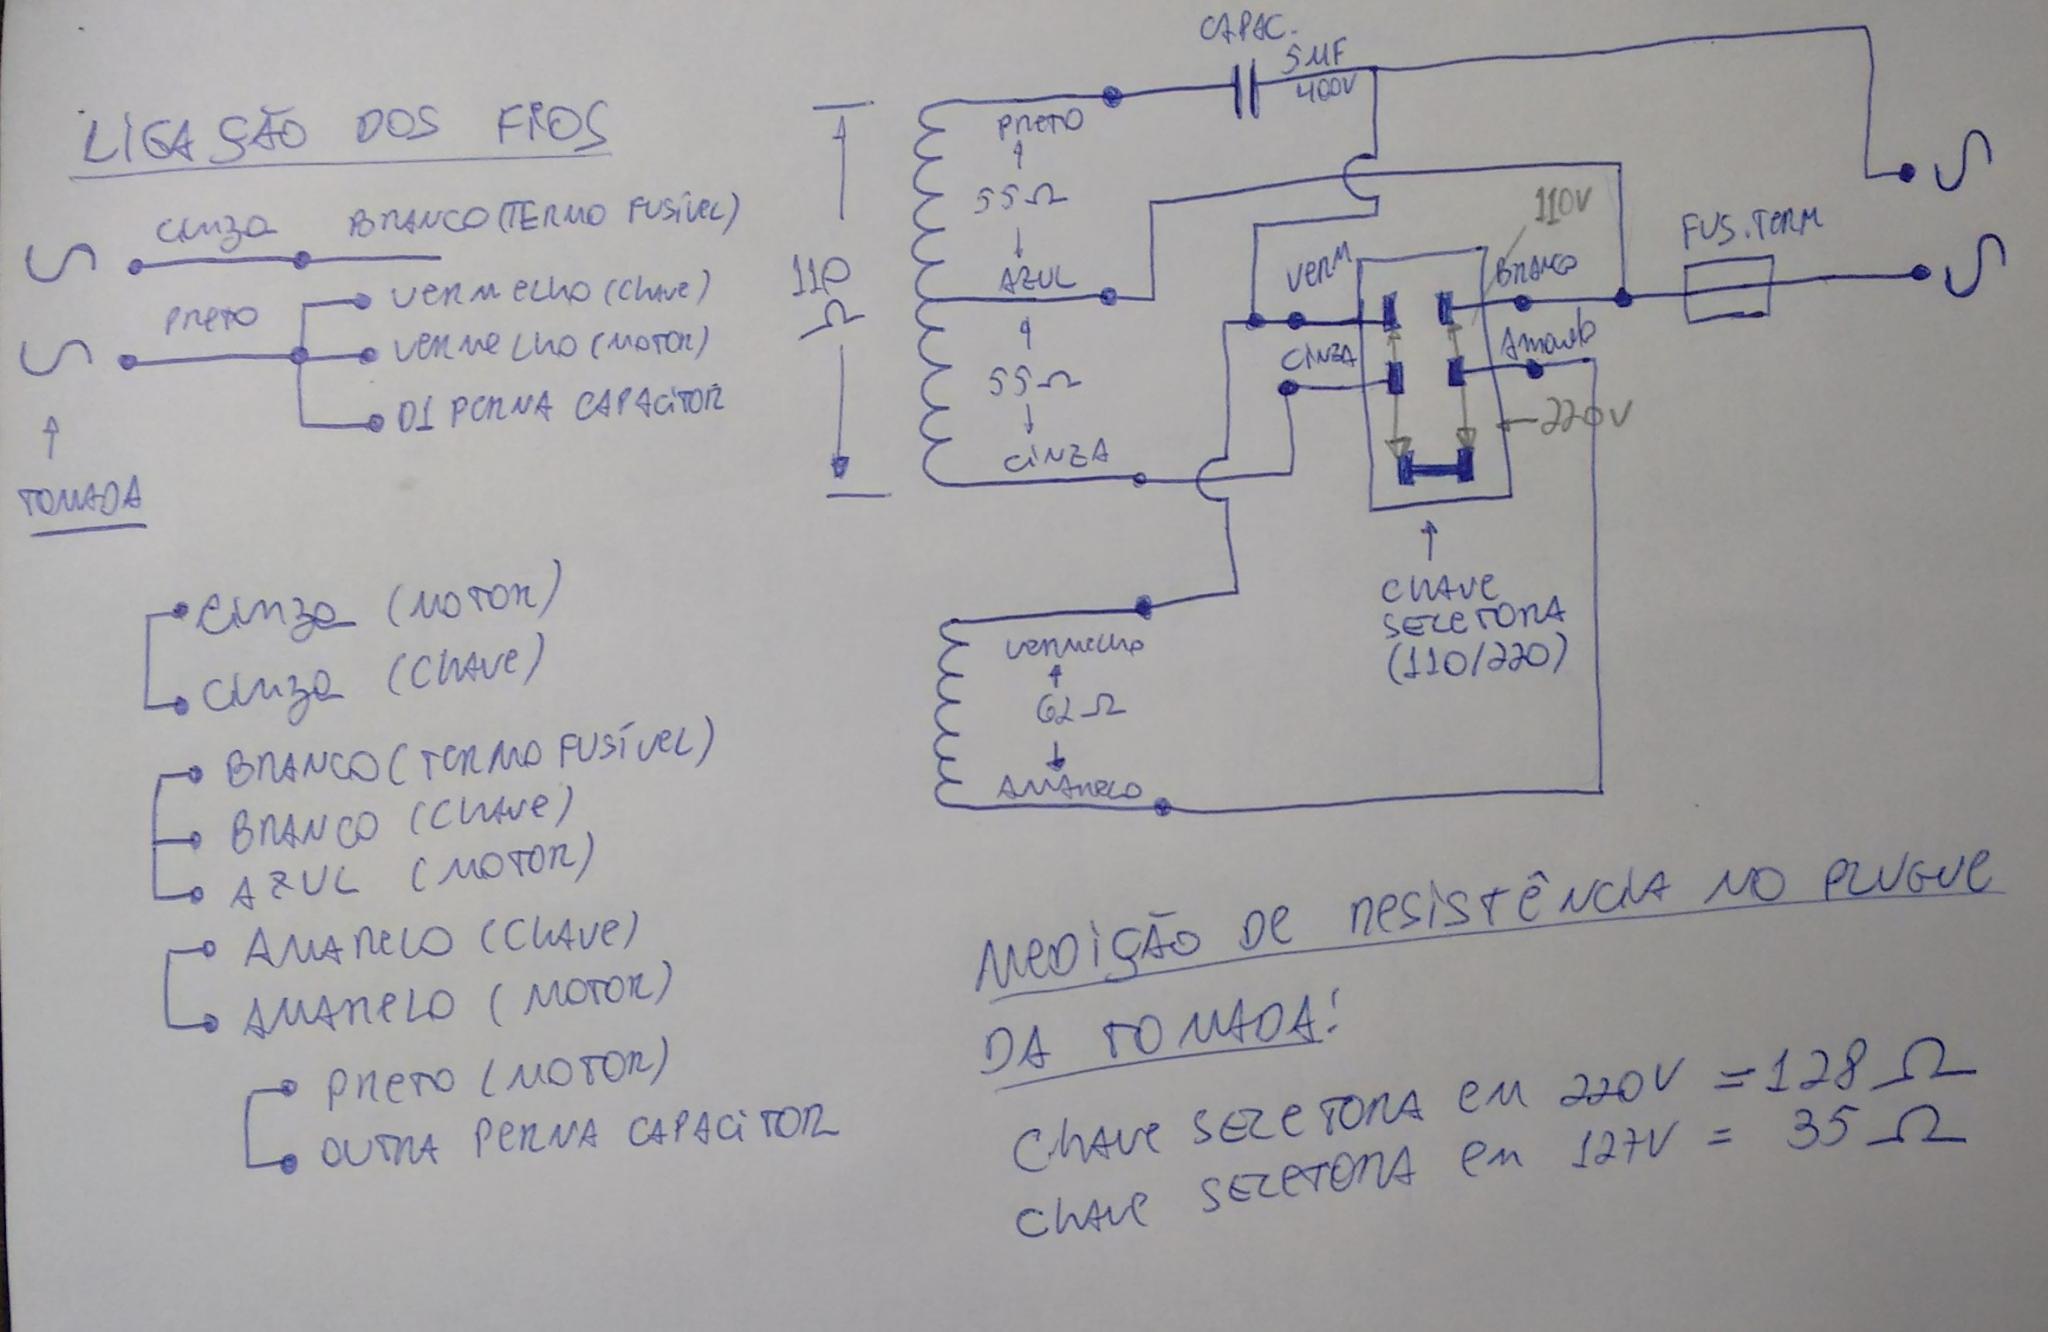 LIGAÇÃO DOS FIOS
CINZA BRANCO (TERMO FUSÍVEL)
PRETO
VERMELHO (CHAVE)
VERMELHO (MOTOR)
01 PERNA CAPACITOR
TOMADA
CINZA (MOTOR)
CINZA (CHAVE)
BRANCO (TERMO FUSÍVEL)
BRANCO (CHAVE)
AZUL (MOTOR)
AMARELO (CHAVE)
AMARELO (MOTOR)
PRETO (MOTOR)
OUTRA PERNA CAPACITOR
CAPAC.
5 µF
400V
PRETO
55 Ω
AZUL
110 Ω
55 Ω
CINZA
VERM
CINZA
110V
BRANCO
AMARELO
FUS. TERM
220V
CHAVE
SELETORA
(110/220)
VERMELHO
62 Ω
AMARELO
MEDIÇÃO DE RESISTÊNCIA NO PLUGUE
DA TOMADA:
CHAVE SELETORA EM 220V = 128 Ω
CHAVE SELETORA EM 127V = 35 Ω